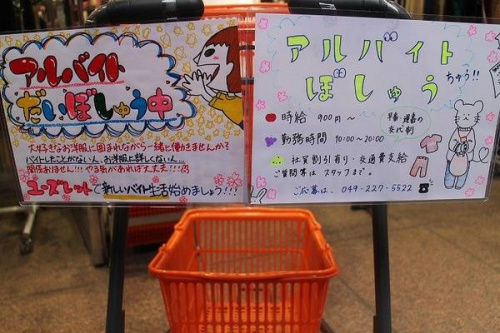 アルバイト
だいぼしゅう中
大好きなお洋服に囲まれながら一緒に働きませんか?
バイトしたことがない人、お洋服に詳しくない人、
関係ありません!!やる気があれば大丈夫!!!
で新しいバイト生活始めましょう!!!
アルバイト
ぼしゅう
ちゅう!!
時給 900円〜
早番・遅番の
交代制
勤務時間 10:00〜20:00
社員割引有り・交通費支給
ご質問等は スタッフまで。
ご応募は、049-227-5522